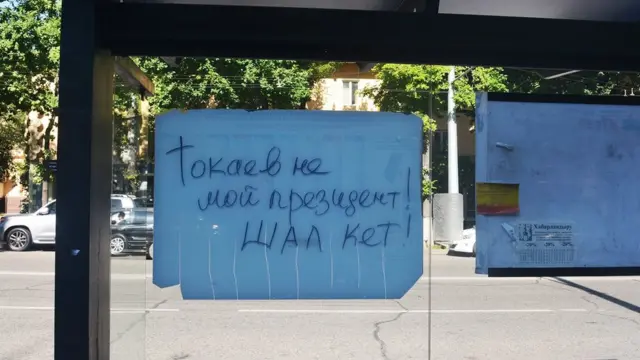 Токаев не
мой президент!
ШАЛ КЕТ!